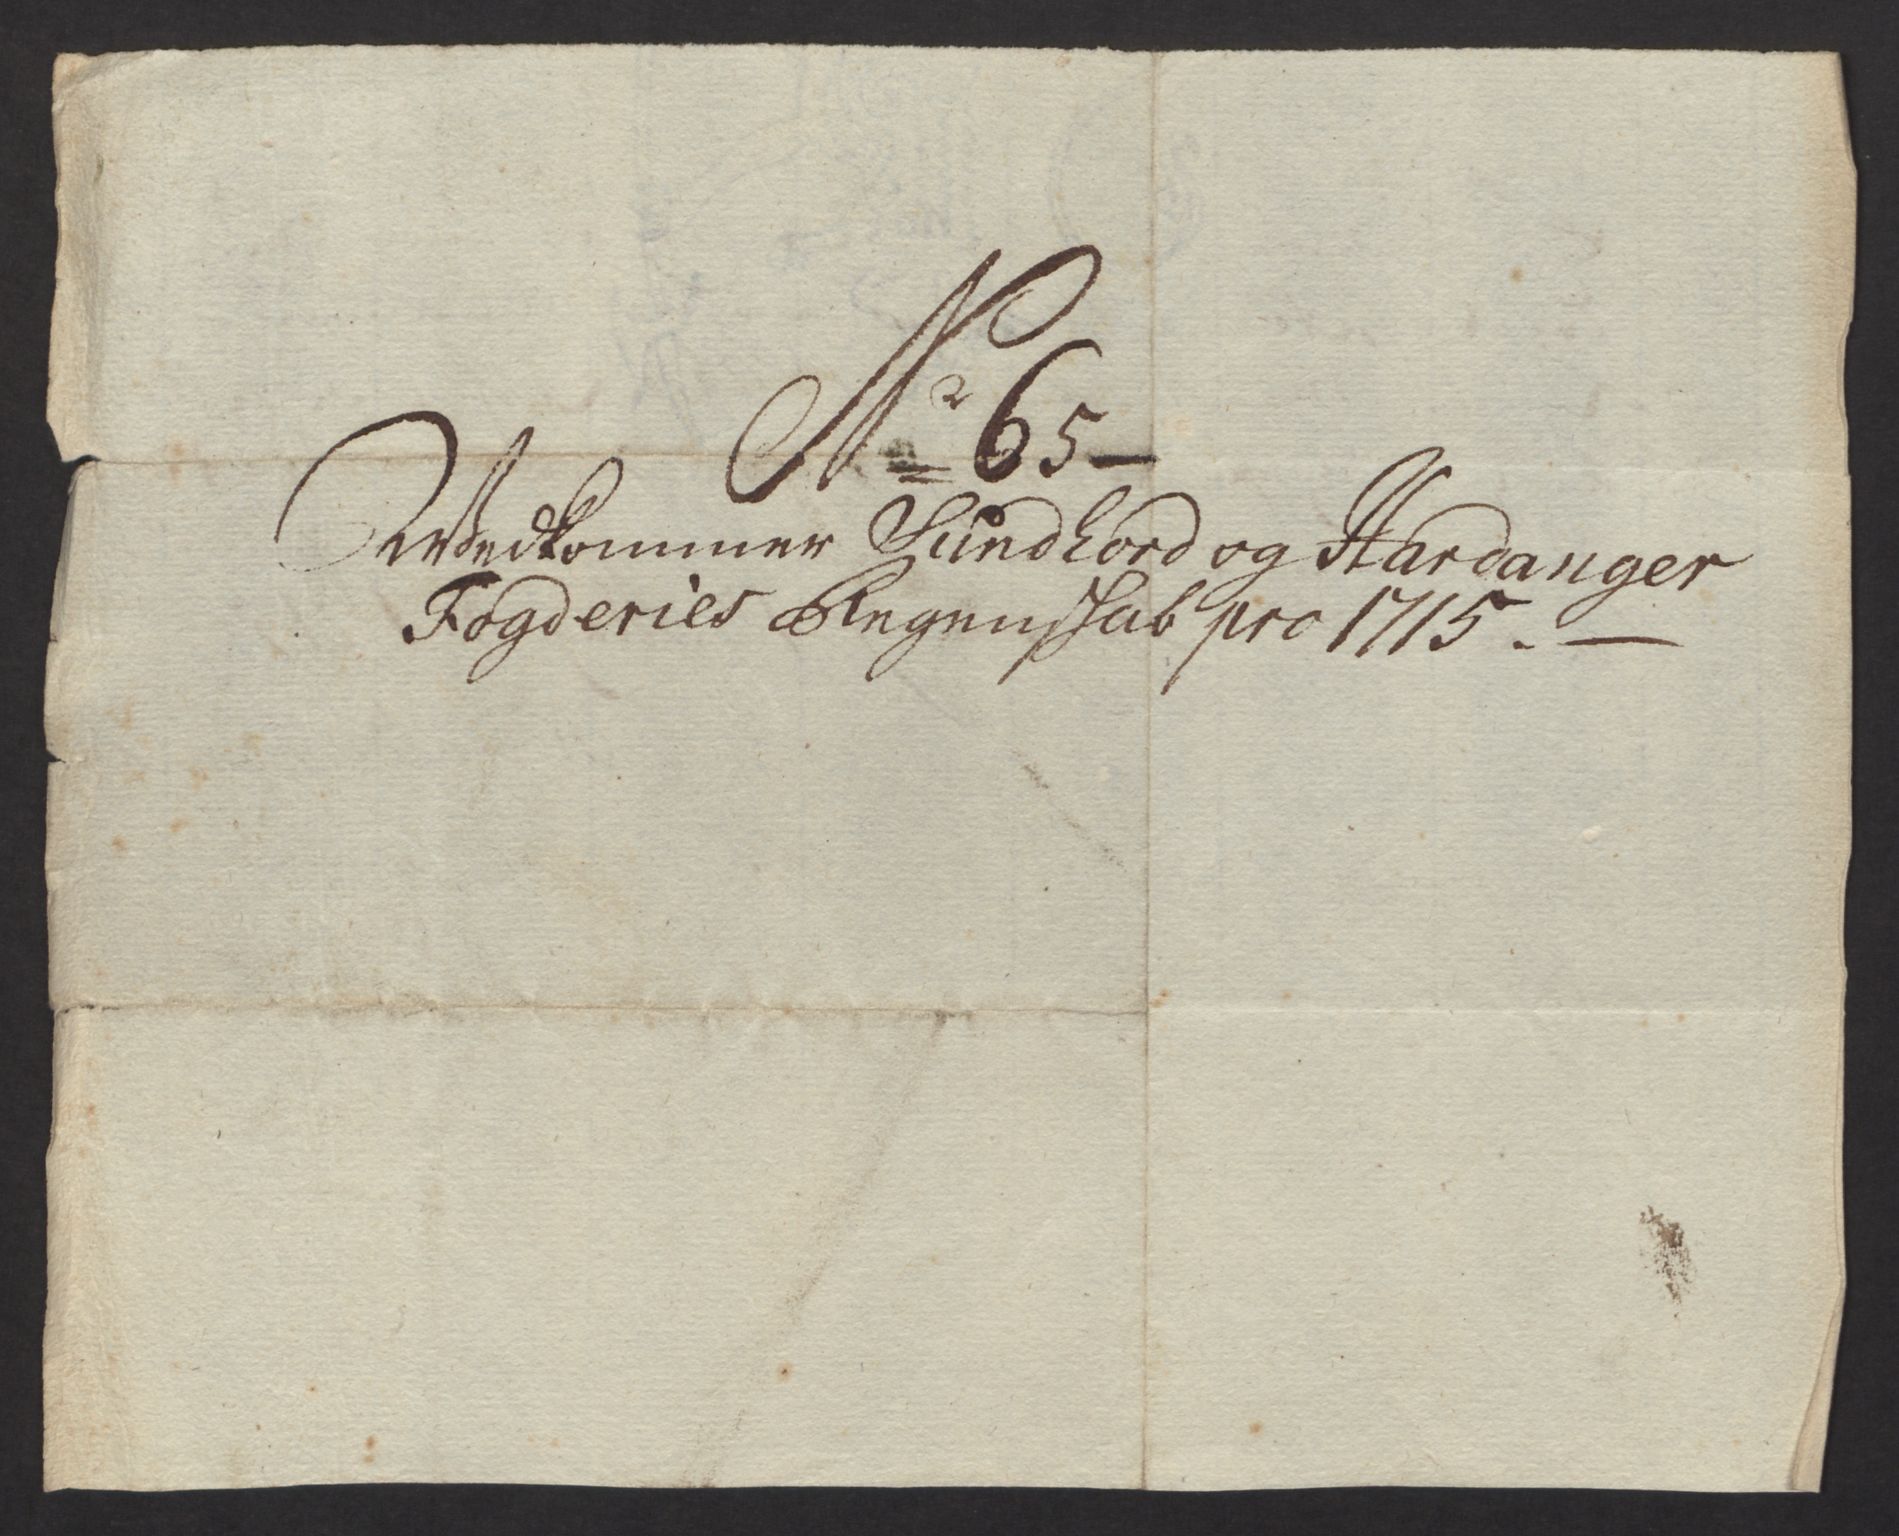 No 65 —
Vedkommer Sundhord og Hardanger
Fogderies Regenskab pro 1715. —